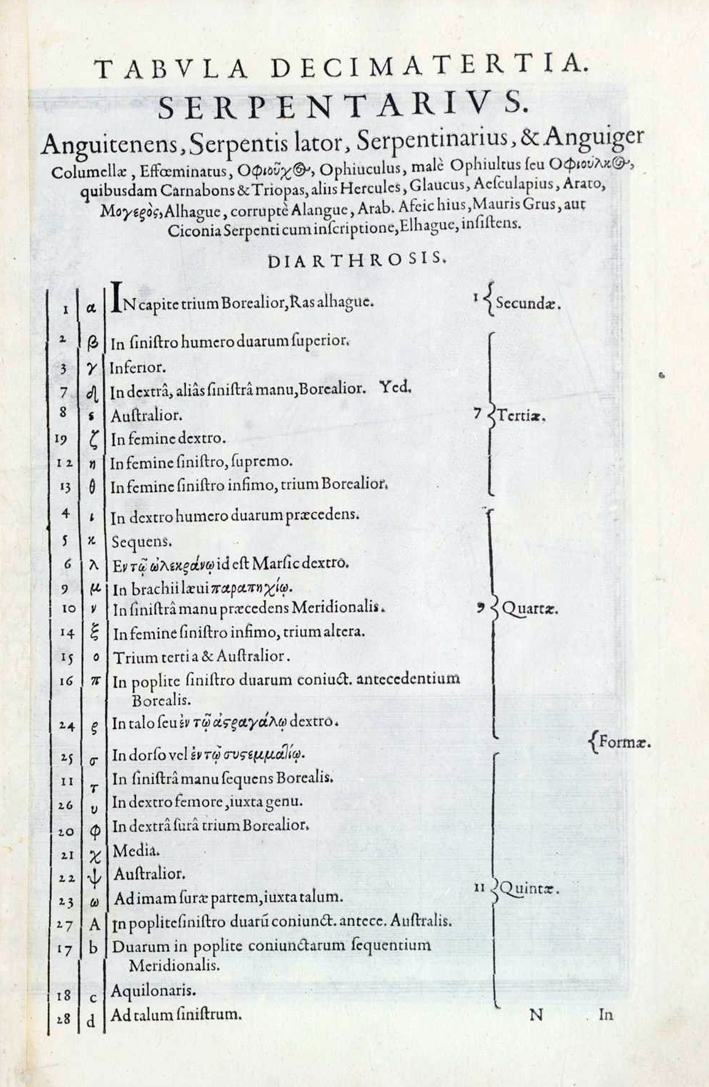 TABVLA DECIMATERTIA.
SERPENTARIVS.
Anguitenens, Serpentis lator, Serpentinarius, & Anguiger
Columellæ, Effœminatus, Οφιοῦχ⊙, Ophiuculus, malè Ophiultus ſeu Οφιούλκ⊙,
quibusdam Carnabons & Triopas, aliis Hercules, Glaucus, Aeſculapius, Arato,
Μογερὸς, Alhague, corruptè Alangue, Arab. Afeic hius, Mauris Grus, aut
Ciconia Serpenti cum inſcriptione, Elhague, inſiſtens.
DIARTHROSIS.
1 α IN capite trium Borealior, Ras alhague. 1 { Secundæ.
2 β In ſiniſtro humero duarum ſuperior.
3 γ Inferior.
7 δ In dextrâ, aliâs ſiniſtrâ manu, Borealior. Yed.
8 ε Auſtralior. 7 { Tertiæ.
19 ζ In femine dextro.
12 η In femine ſiniſtro, ſupremo.
13 θ In femine ſiniſtro infimo, trium Borealior.
4 ι In dextro humero duarum præcedens.
5 κ Sequens.
6 λ Εν τῷ ὠλεκράνῳ id eſt Marſic dextro.
9 μ In brachii læui παραπηχίῳ.
10 ν In ſiniſtrâ manu præcedens Meridionalis. 9 { Quartæ.
14 ξ In femine ſiniſtro infimo, trium altera.
15 ο Trium tertia & Auſtralior.
16 π In poplite ſiniſtro duarum coniuct. antecedentium
Borealis.
24 ρ In talo ſeu ἐν τῷ ἀςραγάλῳ dextro.
{ Formæ.
25 σ In dorſo vel ἐν τῷ
11 τ In ſiniſtrâ manu ſequens Borealis.
26 υ In dextro femore, iuxta genu.
20 φ In dextrâ ſurâ trium Borealior.
21 χ Media.
22 ψ Auſtralior.
23 ω Ad imam ſuræ partem, iuxta talum. 11 { Quintæ.
27 A In poplite ſiniſtro duarū coniunct. antece. Auſtralis.
17 b Duarum in poplite coniunctarum ſequentium
Meridionalis.
18 c Aquilonaris.
28 d Ad talum ſiniſtrum.
N In